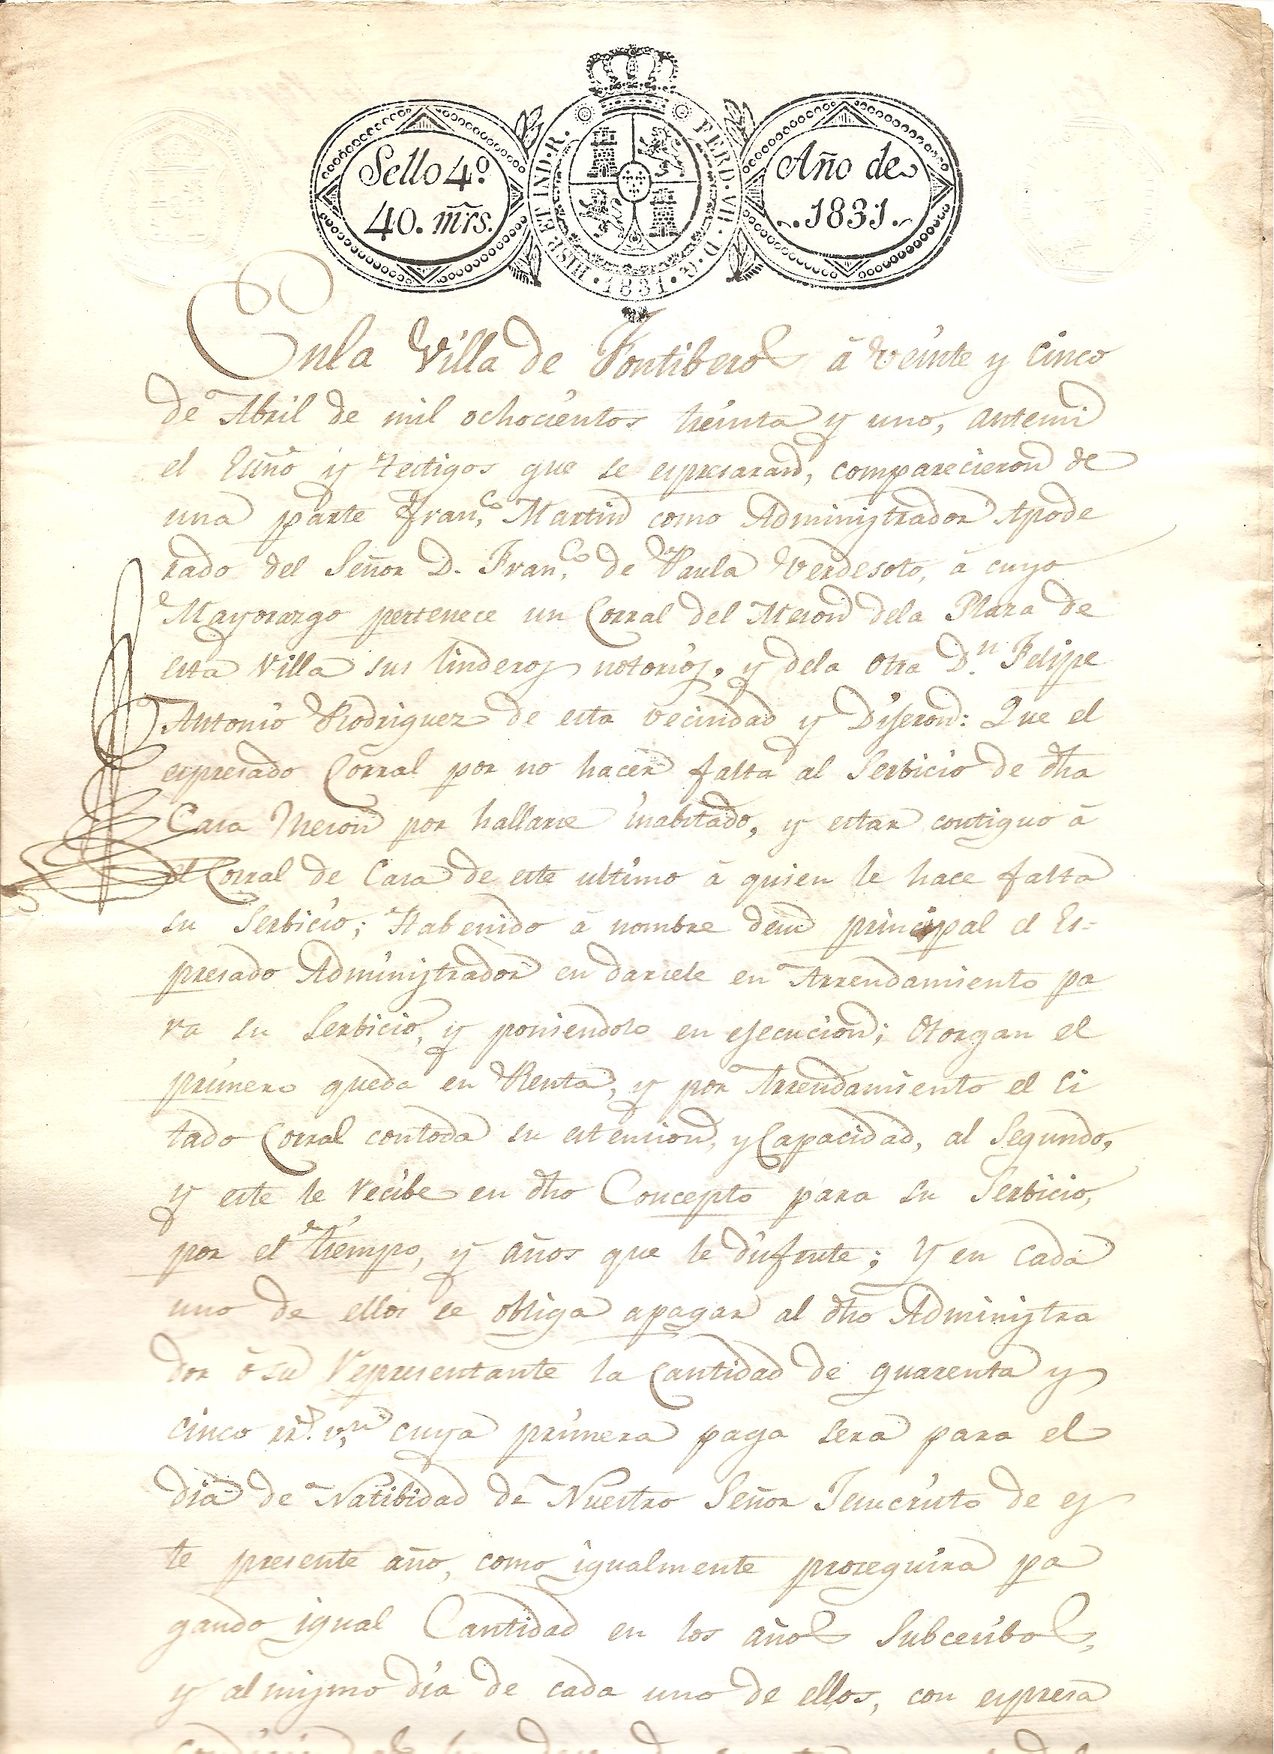 Sello 4º
40. mrs.
HISP. ET IND. R.
FERD. VII. D. G.
1831
Año de
1831
En la Villa de Fontiberos á veinte y cinco
de Abril de mil ochocientos treinta y uno, antemi
el Essno y testigos que se espresaran, comparecieron de
una parte Franco. Martin como Administrador Apode
rado del Señor D. Franco. de Paula Verdesoto, á cuyo
Mayorazgo pertenece un Corral del Meson dela Plaza de
esta Villa sus linderos notorios, y dela otra Dn. Felipe
Antonio Rodriguez de esta vecindad y Dijeron: Que el
espresado Corral por no hacer falta al Serbicio de dha
Casa Meson por hallarse inabitado, y estar contiguo á
el Corral de Casa de este ultimo á quien le hace falta
su Serbicio; Habenido á nombre de su principal el Es-
presado Administrador en darsele en Arrendamiento pa
ra su Serbicio, y poniendolo en ejecucion; Otorgan el
primero queda en Renta, y por Arrendamiento el Ci
tado Corral contoda su estension, y Capacidad, al Segundo,
y este le recibe en dho Concepto para su Serbicio,
por el tiempo, y años que le disfrute; Y en cada
uno de ellos se obliga apagar al dho Administra
dor ó su Representante la Cantidad de quarenta y
cinco rrs. vn. cuya primera paga sera para el
dia de Natibidad de Nuestro Señor Jesucristo de es
te presente año, como igualmente proseguira pa
gando igual Cantidad en los años Subcesibos,
y al mismo dia de cada uno de ellos, con espresa